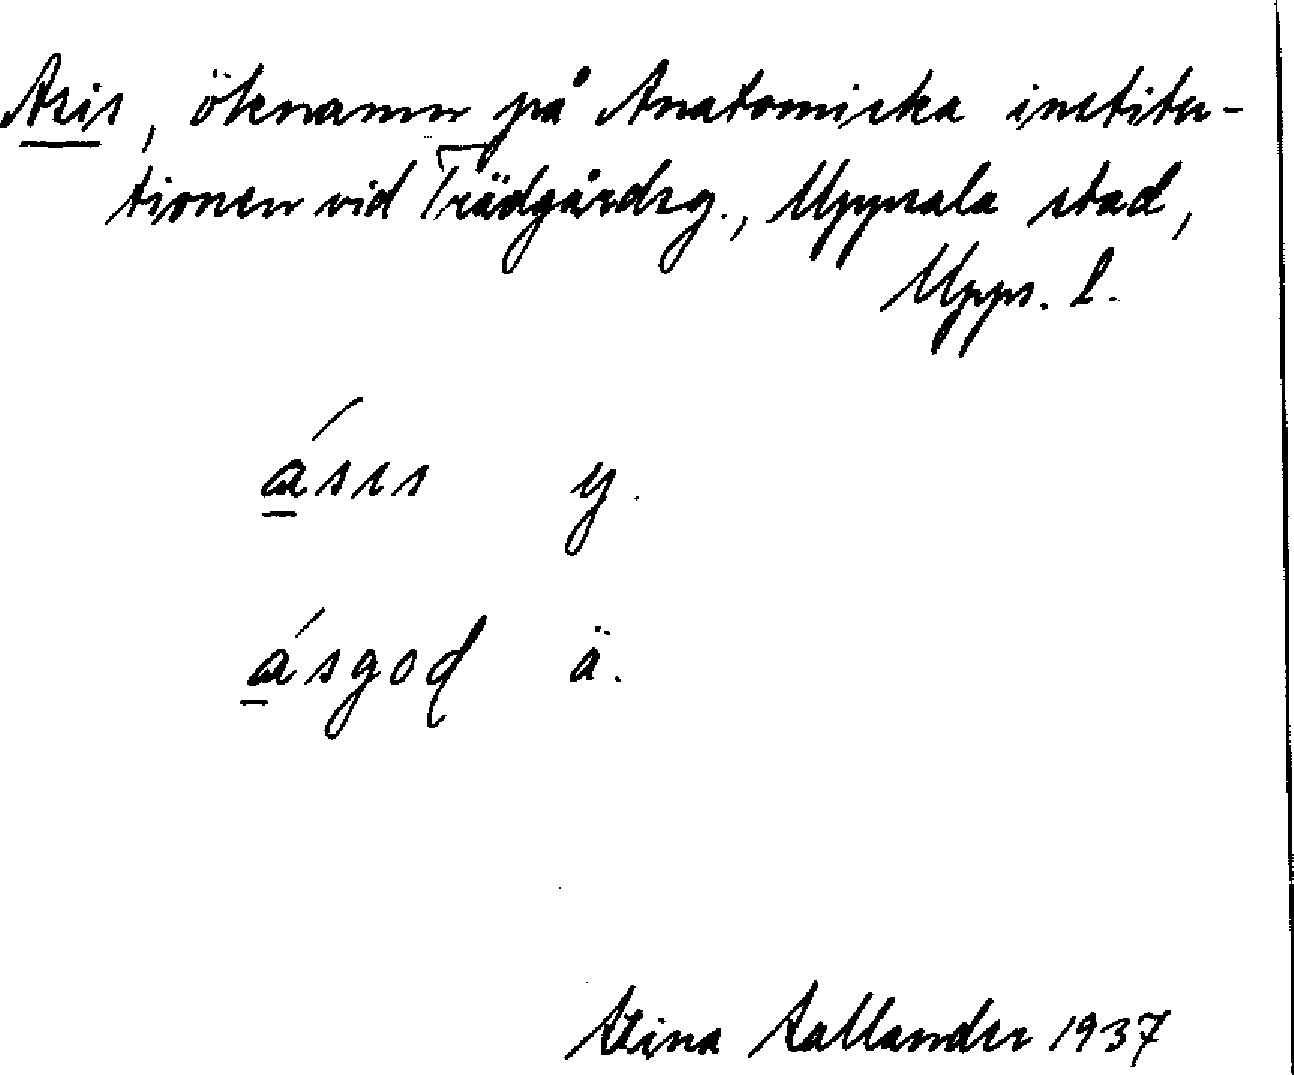 Asis, öknamn på Anatomiska institu-
tionen vid Trädgårdsg., Uppsala stad,
Upps. l.
ásıs y.
ásgod ä.
1937